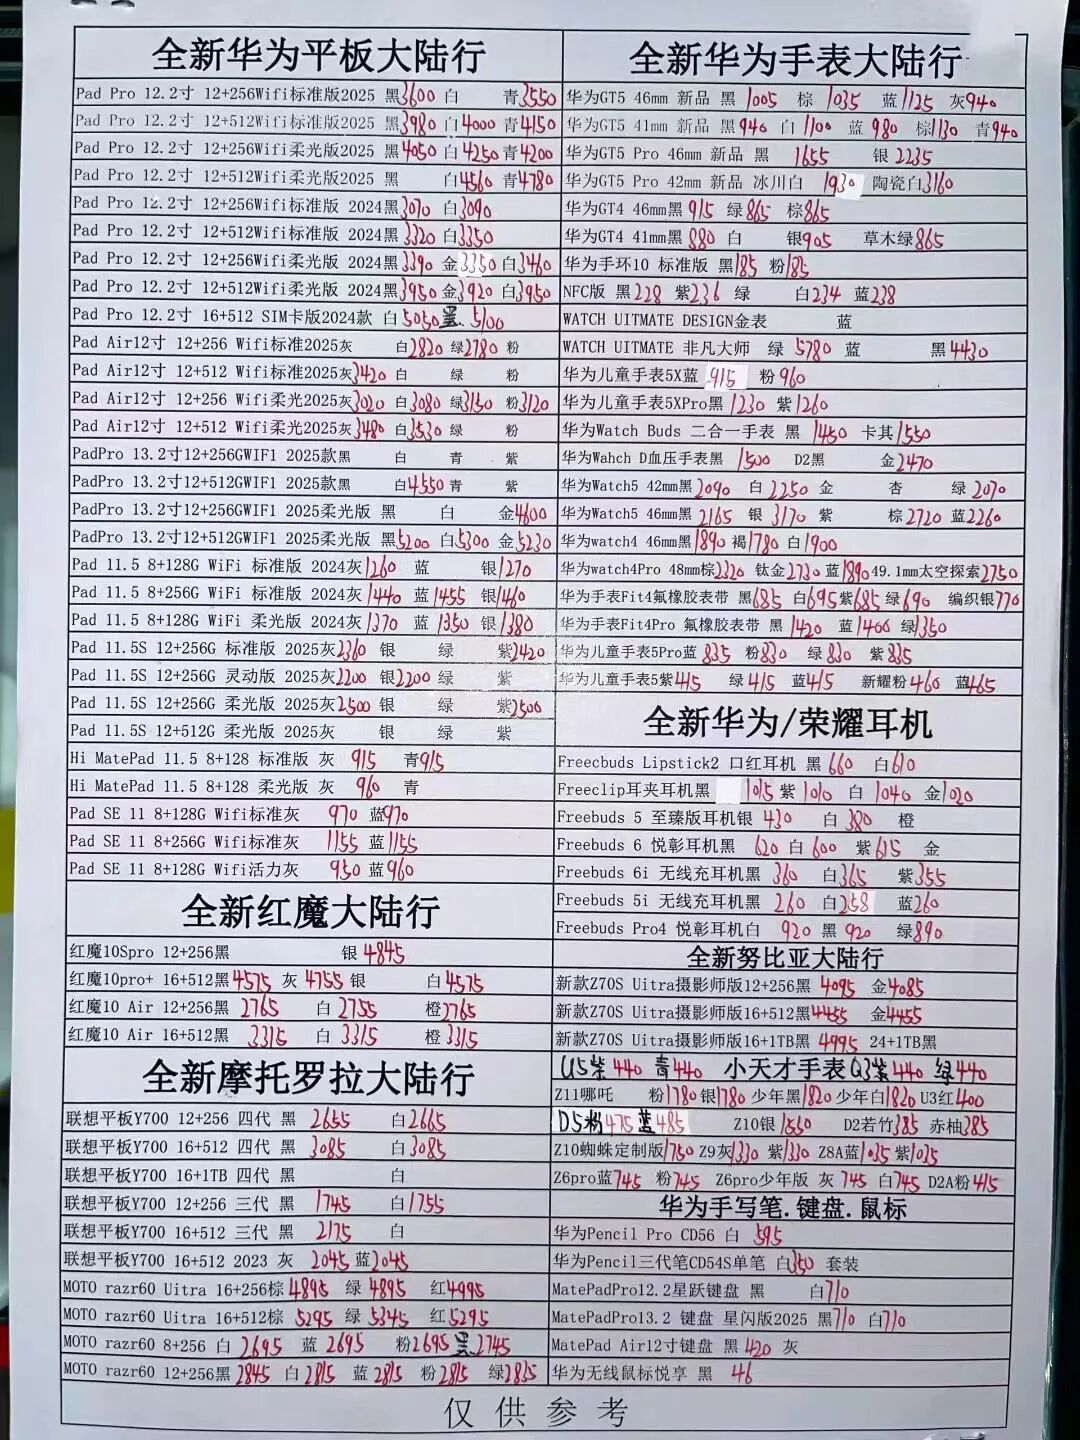 全新华为平板大陆行
Pad Pro 12.2寸 12+256Wifi标准版2025 黑3600 白 青3550
Pad Pro 12.2寸 12+512Wifi标准版2025 黑3980 白4000 青4150
Pad Pro 12.2寸 12+256Wifi柔光版2025 黑4050 白4250 青4200
Pad Pro 12.2寸 12+512Wifi柔光版2025 黑 白4560 青4780
Pad Pro 12.2寸 12+256Wifi标准版 2024黑3070 白3090
Pad Pro 12.2寸 12+512Wifi标准版 2024黑3320 白3350
Pad Pro 12.2寸 12+256Wifi柔光版 2024黑3390 金3350 白3460
Pad Pro 12.2寸 12+512Wifi柔光版 2024黑3950 金3920 白3950
Pad Pro 12.2寸 16+512 SIM卡版2024款 白5050 黑.5100
Pad Air12寸 12+256 Wifi标准2025灰 白2820 绿2780 粉
Pad Air12寸 12+512 Wifi标准2025灰3420 白 绿 粉
Pad Air12寸 12+256 Wifi柔光2025灰3020 白3080 绿3150 粉3120
Pad Air12寸 12+512 Wifi柔光2025灰3480 白3530 绿 粉
PadPro 13.2寸12+256GWIF1 2025款黑 白 青 紫
PadPro 13.2寸12+512GWIF1 2025款黑 白4550 青 紫
PadPro 13.2寸12+256GWIF1 2025柔光版 黑 白 金4600
PadPro 13.2寸12+512GWIF1 2025柔光版 黑5200 白5300 金5230
Pad 11.5 8+128G WiFi 标准版 2024灰1260 蓝 银1270
Pad 11.5 8+256G WiFi 标准版 2024灰1440 蓝1455 银1460
Pad 11.5 8+128G WiFi 柔光版 2024灰1370 蓝1350 银1380
Pad 11.5S 12+256G 标准版 2025灰2360 银 绿 紫2420
Pad 11.5S 12+256G 灵动版 2025灰2200 银2200 绿 紫
Pad 11.5S 12+256G 柔光版 2025灰2500 银 绿 紫2500
Pad 11.5S 12+512G 柔光版 2025灰 银 绿 紫
Hi MatePad 11.5 8+128 标准版 灰 915 青915
Hi MatePad 11.5 8+128 柔光版 灰 960 青
Pad SE 11 8+128G Wifi标准灰 970 蓝970
Pad SE 11 8+256G Wifi标准灰 1155 蓝1155
Pad SE 11 8+128G Wifi活力灰 950 蓝960
全新红魔大陆行
红魔10Spro 12+256黑 银 4845
红魔10pro+ 16+512黑4575 灰 4755 银 白4575
红魔10 Air 12+256黑 2765 白 2755 橙2765
红魔10 Air 16+512黑 3315 白 3315 橙 3315
全新摩托罗拉大陆行
联想平板Y700 12+256 四代 黑 2655 白2665
联想平板Y700 16+512 四代 黑 3085 白3085
联想平板Y700 16+1TB 四代 黑 白
联想平板Y700 12+256 三代 黑 1745 白1755
联想平板Y700 16+512 三代 黑 2175 白
联想平板Y700 16+512 2023 灰 2045 蓝2045
MOTO razr60 Uitra 16+256棕 4895 绿 4895 红4995
MOTO razr60 Uitra 16+512棕 5295 绿 5345 红5295
MOTO razr60 8+256 白 2695 蓝 2695 粉2695 黑.2745
MOTO razr60 12+256黑 2845 白 2815 蓝 2815 粉 2815 绿2835
全新华为手表大陆行
华为GT5 46mm 新品 黑 1005 棕 1035 蓝1125 灰940
华为GT5 41mm 新品 黑940 白 1100 蓝 980 棕1130 青940
华为GT5 Pro 46mm 新品 黑 1655 银 2235
华为GT5 Pro 42mm 新品 冰川白 1930 陶瓷白3160
华为GT4 46mm黑 915 绿 865 棕865
华为GT4 41mm黑 880 白 银905 草木绿865
华为手环10 标准版 黑185 粉185
NFC版 黑 228 紫236 绿 白234 蓝238
WATCH UITMATE DESIGN金表 蓝
WATCH UITMATE 非凡大师 绿 5780 蓝 黑4430
华为儿童手表5X蓝 915 粉 960
华为儿童手表5XPro黑 1230 紫1260
华为Watch Buds 二合一手表 黑 1450 卡其1550
华为Wahch D血压手表黑 1500 D2黑 金2470
华为Watch5 42mm黑2090 白 2250 金 杏 绿 2070
华为Watch5 46mm黑 2165 银 3170 紫 棕2720 蓝2260
华为watch4 46mm黑1890 褐1780 白1900
华为watch4Pro 48mm棕2320 钛金2730 蓝1890 49.1mm太空探索2750
华为手表Fit4氟橡胶表带 黑685 白695 紫685 绿690 编织银770
华为手表Fit4Pro 氟橡胶表带 黑 1420 蓝1400 绿1350
华为儿童手表5Pro蓝 835 粉830 绿 830 紫 835
华为儿童手表5紫415 绿 415 蓝415 新耀粉460 蓝465
全新华为/荣耀耳机
Freecbuds Lipstick2 口红耳机 黑 660 白610
Freeclip耳夹耳机黑 1015 紫 1010 白 1040 金1020
Freebuds 5 至臻版耳机银 430 白 380 橙
Freebuds 6 悦彰耳机黑 620 白 600 紫615 金
Freebuds 6i 无线充耳机黑 360 白365 紫355
Freebuds 5i 无线充耳机黑 260 白258 蓝260
Freebuds Pro4 悦彰耳机白 920 黑 920 绿890
全新努比亚大陆行
新款Z70S Uitra摄影师版12+256黑 4095 金4085
新款Z70S Uitra摄影师版16+512黑4455 金4455
新款Z70S Uitra摄影师版16+1TB黑 4995 24+1TB黑
U5紫 440 青440 小天才手表Q3紫440 绿440
Z11哪吒 粉1780 银1780 少年黑1820 少年白1820 U3红400
D5粉475 蓝485 Z10银1550 D2若竹385 赤柚385
Z10蜘蛛定制版1750 Z9灰1330 紫1330 Z8A蓝1035 紫1035
Z6pro蓝745 粉745 Z6pro少年版 灰 745 白745 D2A粉415
华为手写笔.键盘.鼠标
华为Pencil Pro CD56 白 595
华为Pencil三代笔CD54S单笔 白350 套装
MatePadPro12.2星跃键盘 黑 白710
MatePadPro13.2 键盘 星闪版2025 黑710 白710
MatePad Air12寸键盘 黑 420 灰
华为无线鼠标悦享 黑 46
仅供参考